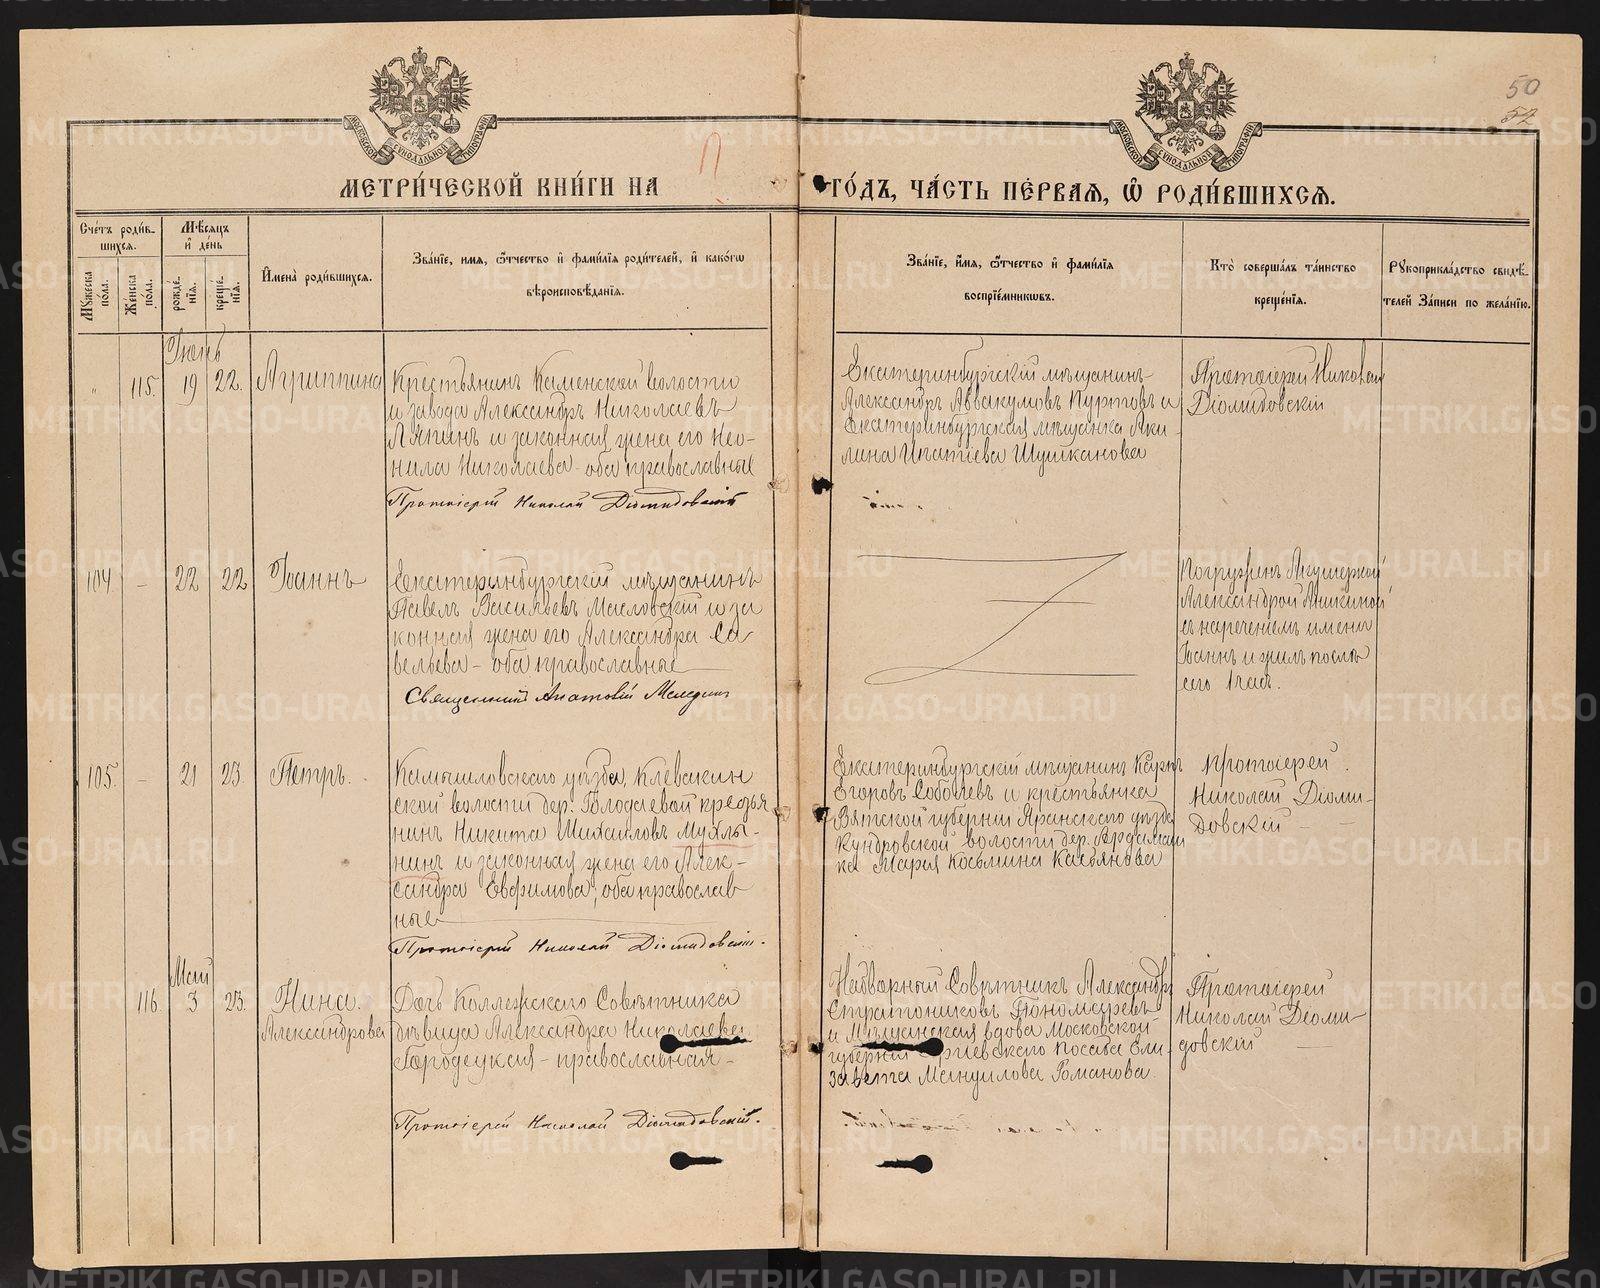 50
52
МЕТРИ́ЧЕСКОЙ КНИ́ГИ НА
ГО́ДЪ, ЧА́СТЬ ПЕ́РВАЯ, Ѡ РОДИ́ВШИХСЯ.
Сче́тъ роди́в-
шихся.
Мꙋ́жеска по́ла.
Же́нска по́ла.
Мѣ́сяцъ и҆ де́нь
рожде́нїя.
креще́нїя.
И҆мена̀ роди́вшихся.
Зва́нїе, и҆мя, ѻ҆́тчество и҆ фами́лїя роди́телей, и҆ како́гѡ
вѣроисповѣ́данїя.
Зва́нїе, и҆́мя, ѻ҆́тчество и҆ фами́лїя
воспрїе́мникѡвъ.
Кто̀ соверша́лъ та́инство
креще́нїя.
Рꙋкоприкла́дство свидѣ́-
телей За́писи по жела́нїю.
Іюнь
" 115. 19 22. Агриппина
Крестьянинъ Каменской волости
и завода Александръ Николаевъ
Ляпинъ и законная жена его Нео-
нила Николаева оба православные
Протоіерей Николай Діомидовскій
Екатеринбургскій мѣщанинъ
Александръ Аввакумовъ Пуртовъ и
Екатеринбургская мѣщанка Аки-
лина Ипатіева Шушканова
Протоіерей Николай
Діомидовскій
104. – 22 22 Іоаннъ
Екатеринбургскій мѣщанинъ
Павелъ Васильевъ Масловскій и за
конная жена его Александра Са
вельева – оба православные
Священникъ Анатолій Меледин
Погруженъ Акушеркой
Александрой Аникиной
съ нареченіемъ имени
Іоаннъ и жилъ послѣ
сего 1 час.
105. – 21 23. Петръ.
Камышловскаго уѣзда, Клевакин
ской волости дер. Голодаевой кресья
нинъ Никита Михаиловъ Мухлы-
нинъ и законная жена его Алек-
сандра Евфимова, оба православ
ные
Протоіерей Николай Діомидовскій.
Екатеринбургскій мѣщанинъ Карпъ
Егоровъ Соболевъ и крестьянка
Вятской губерніи Яранскаго уѣзда
Кундровской волости дер.
ка Марія Косьмина Касьянова
протоіерей.
Николай Діоми-
довскій –
Май
116. 3 23. Нина.
Александрова
Дочь Коллежскаго Совѣтника
дѣвица Александра Николаева
Городецкая – православная –
Протоіерей Николай Діомидовскій.
Надворный Совѣтникъ Александръ
Стратониковъ Пономаревъ
и Мѣщанская вдова Московской
губерніи Сергіевскаго Посада Ели-
завета Мануилова Романова.
Протоіерей
Николай Діоми-
довскій –
METRIKI.GASO-URAL.RU